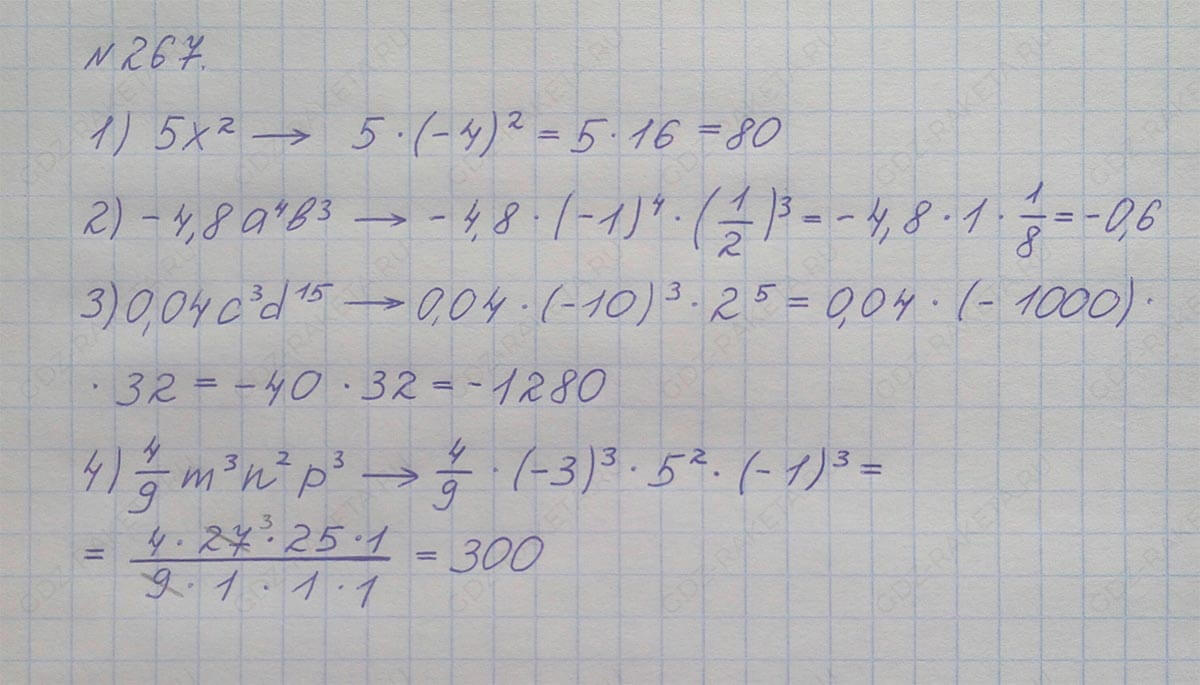 N267.
1) 5x² → 5 · (-4)² = 5 · 16 = 80
2) -4,8 a⁴b³ → -4,8 · (-1)⁴ · (1/2)³ = -4,8 · 1 · 1/8 = -0,6
3) 0,04 c³d¹⁵ → 0,04 · (-10)³ · 2⁵ = 0,04 · (-1000) ·
· 32 = -40 · 32 = -1280
4) 4/9 m³n²p³ → 4/9 · (-3)³ · 5² · (-1)³ =
= 4 · 27³ · 25 · 1 / 9 · 1 · 1 · 1 = 300
GDZ-RAKETA.RU